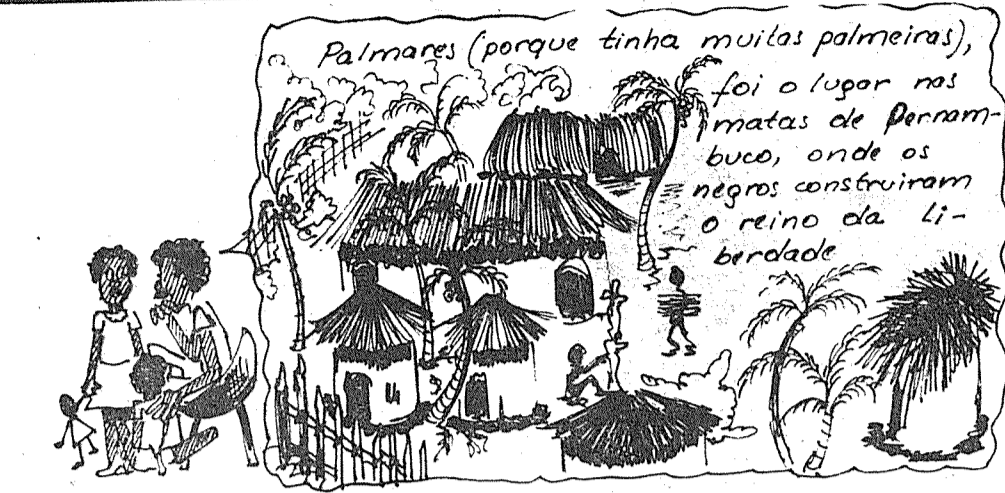 Palmares (porque tinha muitas palmeiras),
foi o lugar nas
matas de Pernam-
buco, onde os
negros construiram
o reino da li-
berdade